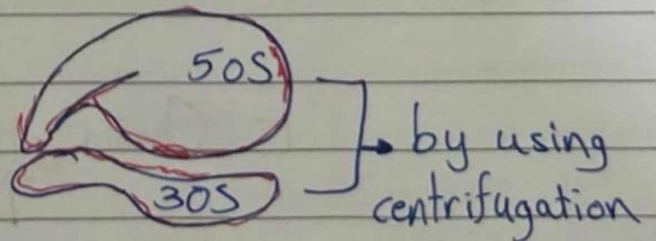 50S
30S
by using
centrifugation